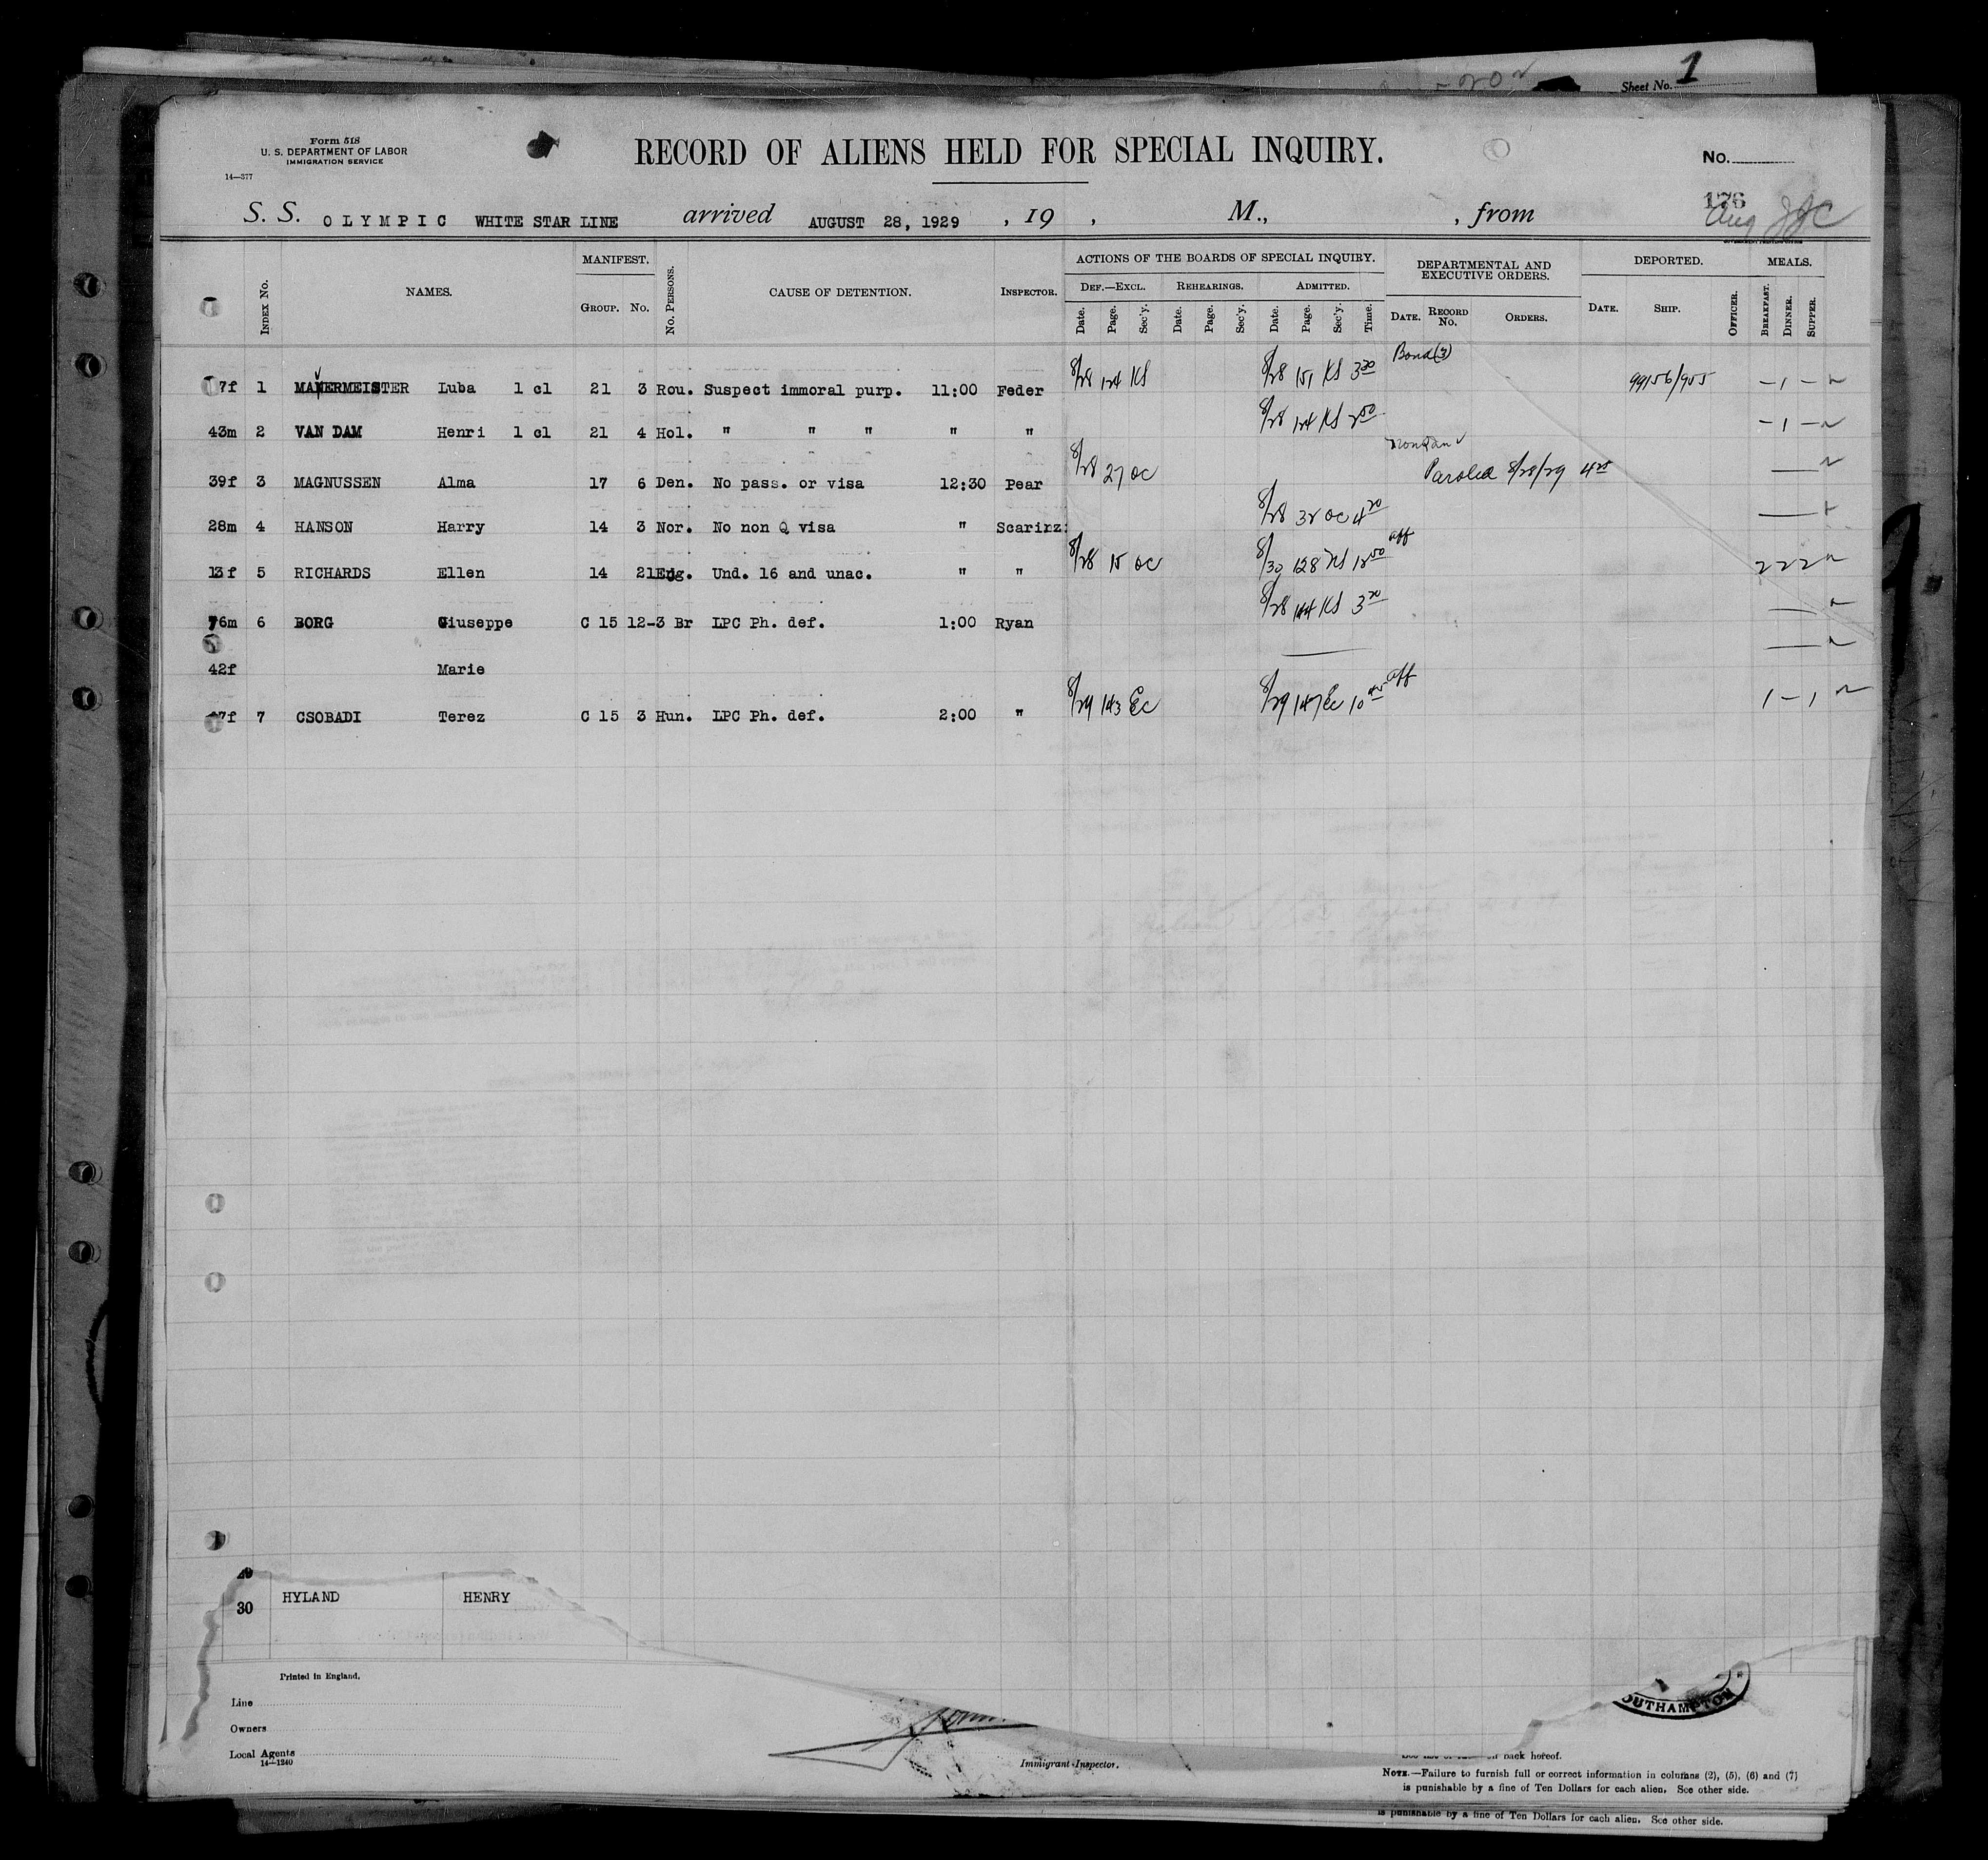 Sheet No. 1
Form 518
U. S. DEPARTMENT OF LABOR
IMMIGRATION SERVICE
14—377
RECORD OF ALIENS HELD FOR SPECIAL INQUIRY.
No.
176
S. S. OLYMPIC WHITE STAR LINE arrived AUGUST 28, 1929 , 19 , M., , from
Index No. NAMES. MANIFEST. Group. No. No. Persons. CAUSE OF DETENTION. Inspector.
ACTIONS OF THE BOARDS OF SPECIAL INQUIRY.
Def.—Excl. Rehearings. Admitted.
Date. Page. Sec'y. Date. Page. Sec'y. Date. Page. Sec'y. Time.
DEPARTMENTAL AND EXECUTIVE ORDERS.
Date. Record No. Orders.
DEPORTED.
Date. Ship. Officer.
MEALS.
Breakfast. Dinner. Supper.
7f 1 Luba 1 cl 21 3 Rou. Suspect immoral purp. 11:00 Feder 8/28 124 KS 8/28 151 KS 3 30 Bond (3) 99156/955 – 1 –
43m 2 VAN DAM Henri 1 cl 21 4 Hol. " " " " " 8/28 124 KS 2 50 – 1 –
39f 3 MAGNUSSEN Alma 17 6 Den. No pass. or visa 12:30 Pear 8/28 27 OC Paroled 8/28/29
28m 4 HANSON Harry 14 3 Nor. No non Q visa " Scarinzi 8/28 32 OC 4 20
13f 5 RICHARDS Ellen 14 21 Eng. Und. 16 and unac. " " 8/28 15 OC 8/30 128 12 50 aff 2 2 2
76m 6 BORG Giuseppe C 15 12-3 Br LPC Ph. def. 1:00 Ryan 8/28 144 KS 3 20
42f Marie
7f 7 CSOBADI Terez C 15 3 Hun. LPC Ph. def. 2:00 " 8/29 143 EC 8/29 147 EC 10 45 aff 1 – 1
29
30 HYLAND HENRY
Printed in England.
Line
Owners
Local Agents
14—1240
Immigrant Inspector.
OUTHAMPTON
back hereof.
Note.—Failure to furnish full or correct information in columns (2), (5), (6) and (7)
is punishable by a fine of Ten Dollars for each alien. See other side.
is punishable by a fine of Ten Dollars for each alien. See other side.